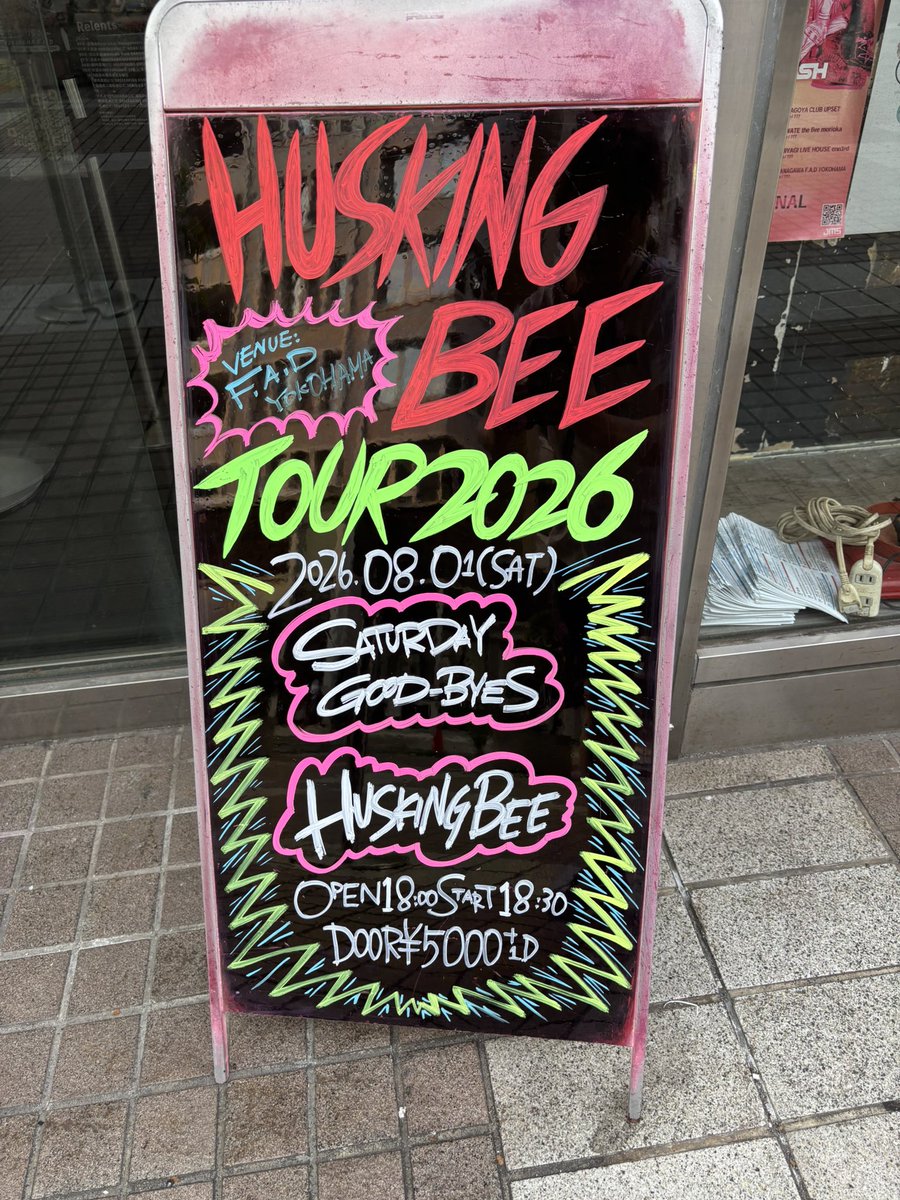 HUSKING
BEE
VENUE:
F.A.D
YOKOHAMA
TOUR2026
2026.08.01(SAT)
SATURDAY
GOOD-BYES
HUSKING BEE
OPEN18:00START18:30
DOOR¥5000+1D
Relents
SH
AGOYA CLUB UPSET
VATE the Bee morioka
IYAGI LIVE HOUSE enn3rd
ANAGAWA F.A.D YOKOHAMA
NAL
JMS